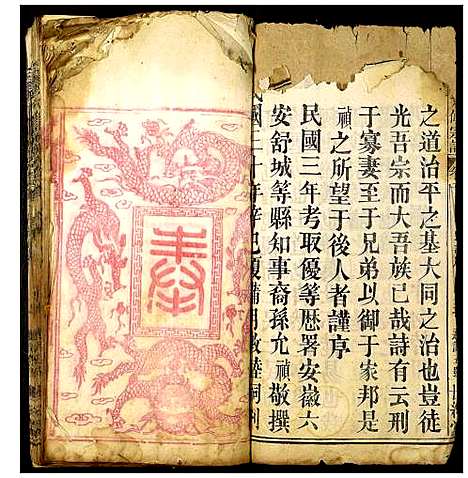 之道治平之基大同之治也豈徒
光吾宗而大吾族已哉詩有云刑
于寡妻至于兄弟以御于家邦是
禎之所望于後人者謹序
民國三年考取優等歷署安徽六
安舒城等縣知事裔孫允禎敬撰
國三十年辛巳夏
奉